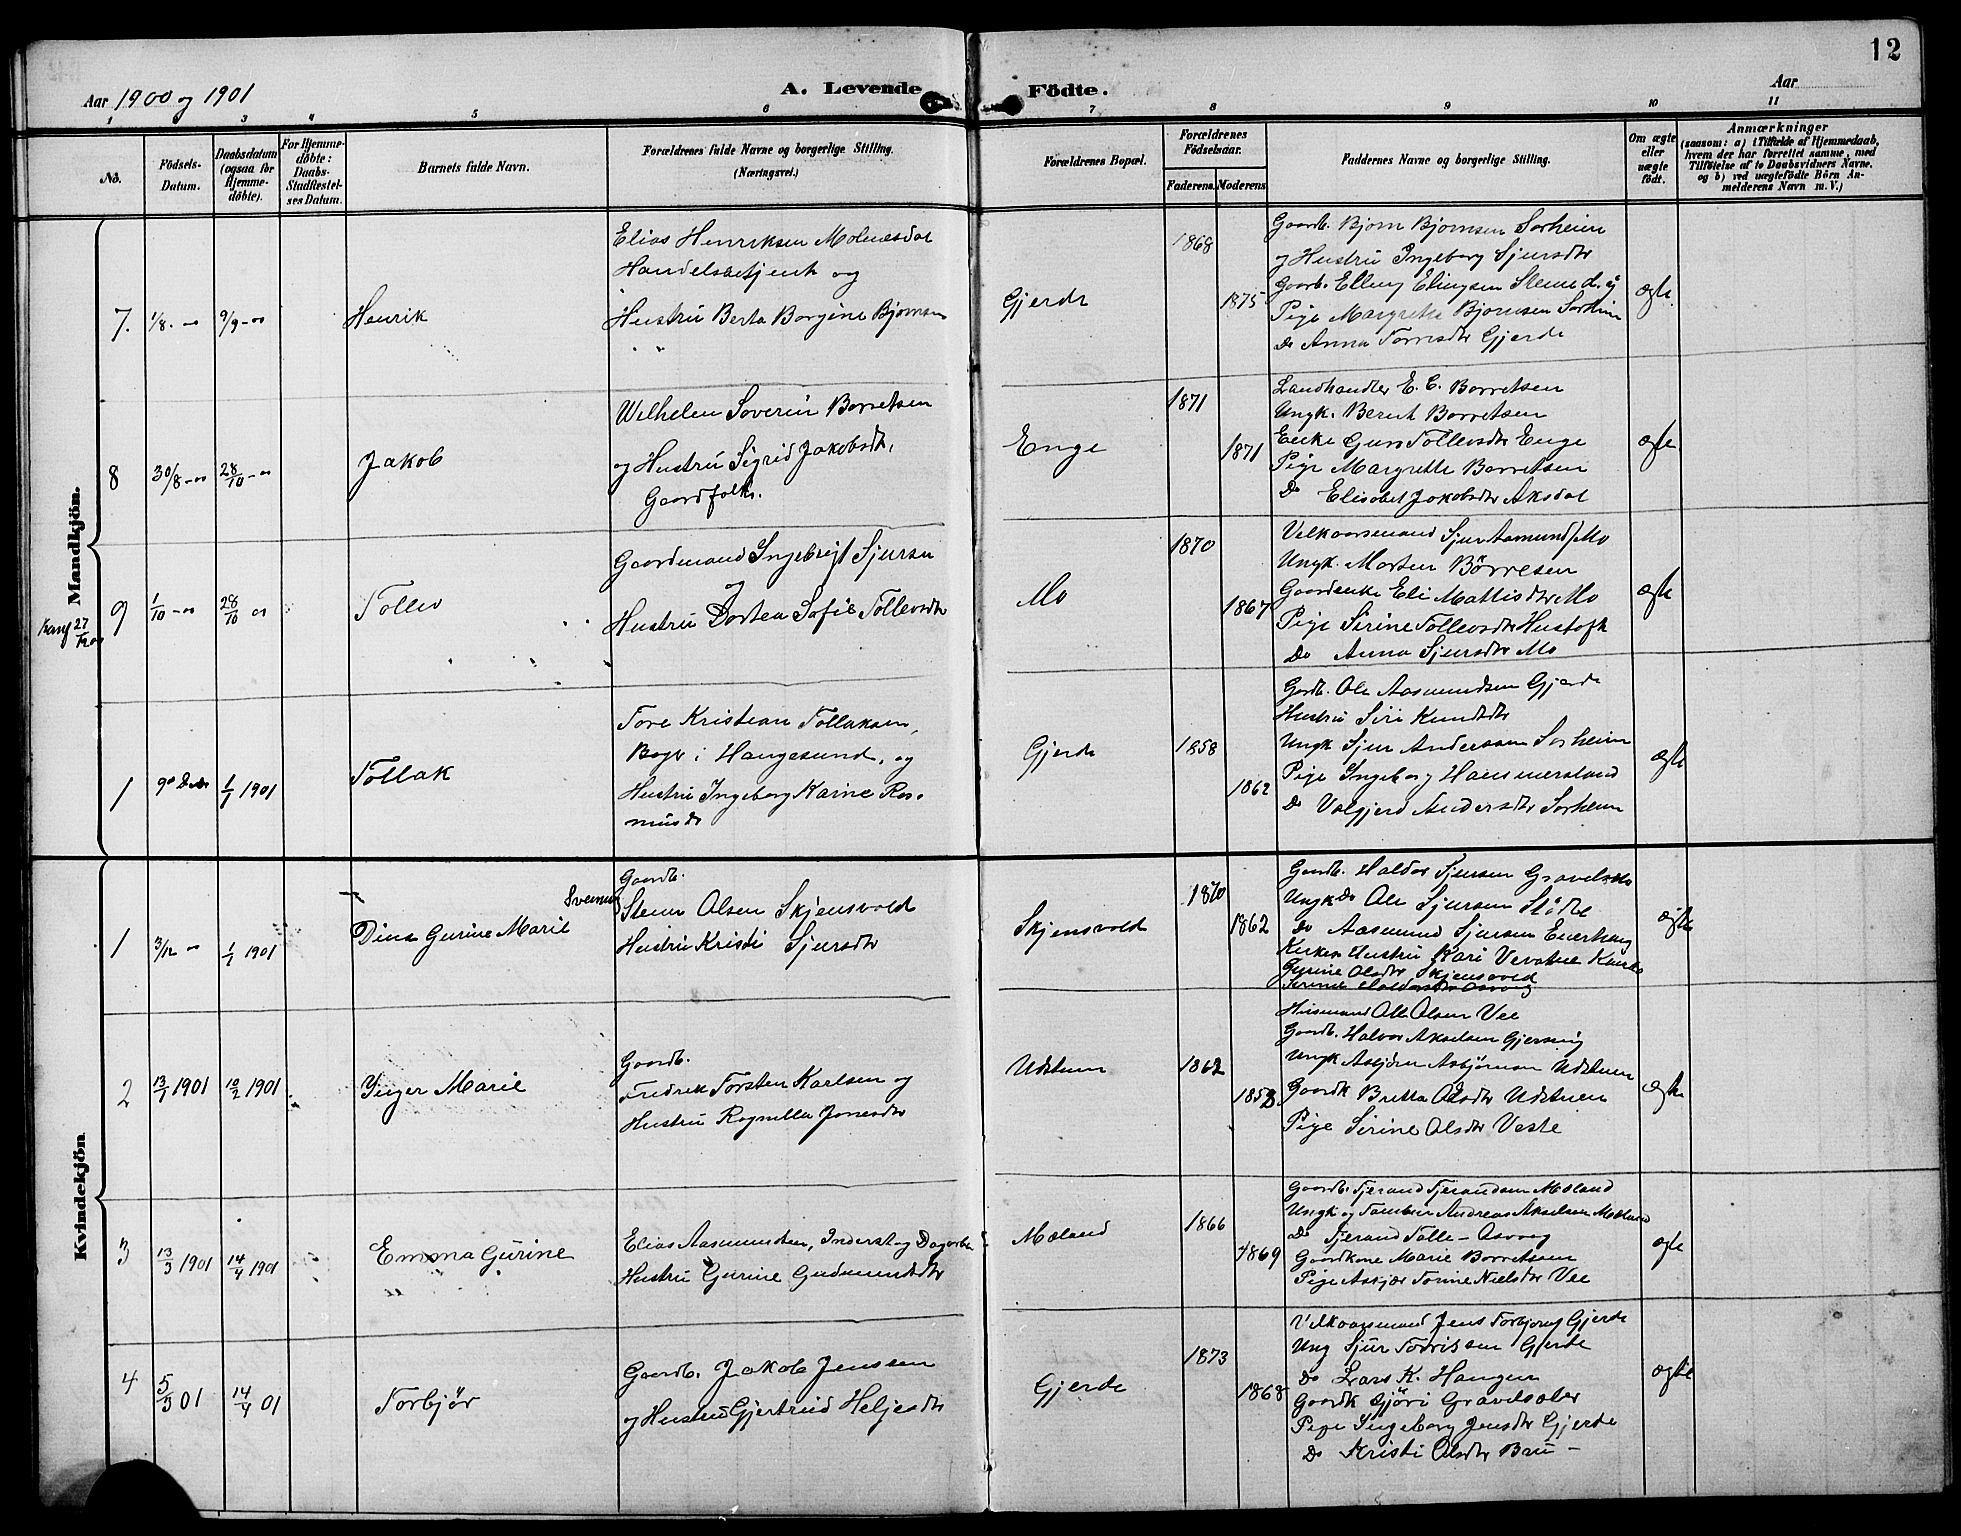 12
Aar 1900 og 1901
A. Levende Fødte.
Aar
1 3 4 5 6 7 8 9 10 11
No.
Födsels-Datum.
Daabsdatum (ogsaa for Hjemme-döbte).
For Hjemme-döbte: Daabs-Stadfæstel-ses Datum.
Barnets fulde Navn.
Forældrenes fulde Navne og borgerlige Stilling.
(Næringsvei.)
Forældrenes Bopæl.
Forældrenes Födselsaar.
Faderens. Moderens.
Faddernes Navne og borgerlige Stilling.
Om ægte eller uægte födt.
Anmærkninger
(saasom: a) i Tilfælde af Hjemmedaab, hvem der har forrettet samme, med Tilföielse af to Daabsvidners Navne. og b) ved uægtefödte Börn An-melderens Navn m. V.)
Mandkjön.
7. 1/8 - 00 9/9 - 00 Henrik
Elias Henriksen Molnesdal
Handelsbetjent og
Hustru Berta Borgine Bjørnsen
Gjerde
1868
1875
Gaardb. Bjørn Bjørnsen Sørheim
og Hustru Ingeborg Sjursdtr
Gaardb. Elling Elingsen
Pige Margrethe Bjørnsen Sørheim
Do Anna Torresdtr Gjerde
ægte.
8 30/8 - 00 28/10 - 00 Jakob
Wilhelm Soverin Borretsen
og Hustru Sigrid Jakobsdtr,
Gaardfolk.
Enge
1871
1871
Landhandler E. C. Borretsen
Ungk. Bernt Borretsen
Enke Guro Tollevsdtr Enge
Pige Margrethe Borretsen
Do Elisabet Jakobsdtr Aksdal
ægte
27/12 00
9 1/10 - 00 28/10 00 Tollev
Gaardmand Ingebrigt Sjursen
og
Hustru Dortea Sofie Tollevsdtr
Mo
1870
1867
Velkaarsmand Sjur Aamund. Mo
Ungk. Morten Børresen
Gaardenke Eli Mattisdtr Mo
Pige Serine Tollevsdtr Hustoft
Do Anna Sjursdtr Mo
ægte
1 1/1 1901 Tollak
Tore Kristian Tollaksen,
Bager i Haugesund, og
Hustru Ingeborg Karine Ras-
musdr
Gjerde
1858
1862
Gardb. Ole Aasmundsen Gjerde
Hustru Siri Knudsdtr
Ungk Sjur Anderssen Sørheim
Pige Ingeborg Hammersland
Do Valgjerd Andersdtr Sørheim
ægte
Kvindekjön.
1 3/12 00 1/1 1901 Dina Gurine Marie
Gaardb.
Svensen
Steen Olsen Skjensvold
Hustru Kristi Sjursdtr
Skjensvold
1870
1862
Gaardb. Haldor Sjursen
Ungk Do Ole Sjursen Stødle
Do Aasmund Sjursen
Hustru Kari
Gurine Olsdtr Skjensvold
Serine Haldorsdtr
ægte
2 13/1 1901 10/2 1901 Inger Marie
Gaardb.
Fredrik Torsten Karlsen og
Hustru Ragnilla Jonesdtr
Udstuen
1862
1853
Husmand Ole Olsen Vee
Gaardb. Halvor Akselsen Gjersvig
Ungk Asbjørn Asbjørnsen Udstuen
Gaardk Britta Olsdtr Udstuen
Pige Serine Olsdtr Veste
ægte
3 13/3 1901 14/4 1901 Emma Gurine
Elias Aasmundsen, Inderst og Dagarb.
Hustru Gurine Gudmundsdtr
Mæland
1866
1869
Gaardb. Tjerand Tjerandsen Mæland
Ungk og Tømmer Andreas Akselsen Mæland
Do Tjerand Tolle - Osvog
Gaardkone Marie Borretsen
Pige Asbjør Torine Nielsdtr Vee
ægte
4 5/3 01 14/4 01 Torbjør
Gaardb. Jakob Jenssen
og Hustru Gjertrud Heljesdtr
Gjerde
1873
1868
Velkaarsmand Jens Torbjørns Gjerde
Ung Sjur Torrissen Gjerde
Do Lars K. Haugen
Gaardk Gjøri
Pige Ingeborg Jensdtr Gjerde
Do Kristi Olsdtr
ægte